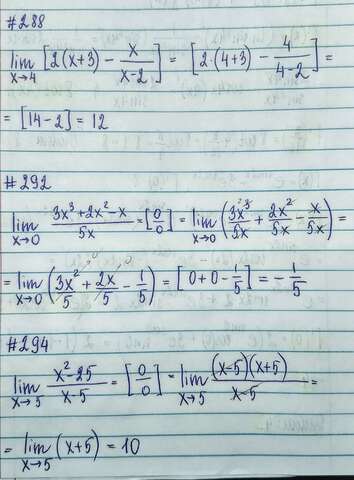 #288
lim x→4 [2(x+3) − x/(x−2)] = [2·(4+3) − 4/(4−2)] =
= [14−2] = 12
#292
lim x→0 (3x³+2x²−x)/5x = [0/0] = lim x→0 (3x³/5x + 2x²/5x − x/5x) =
= lim x→0 (3x²/5 + 2x/5 − 1/5) = [0+0−1/5] = −1/5
#294
lim x→5 (x²−25)/(x−5) = [0/0] = lim x→5 (x−5)(x+5)/(x−5) =
= lim x→5 (x+5) = 10